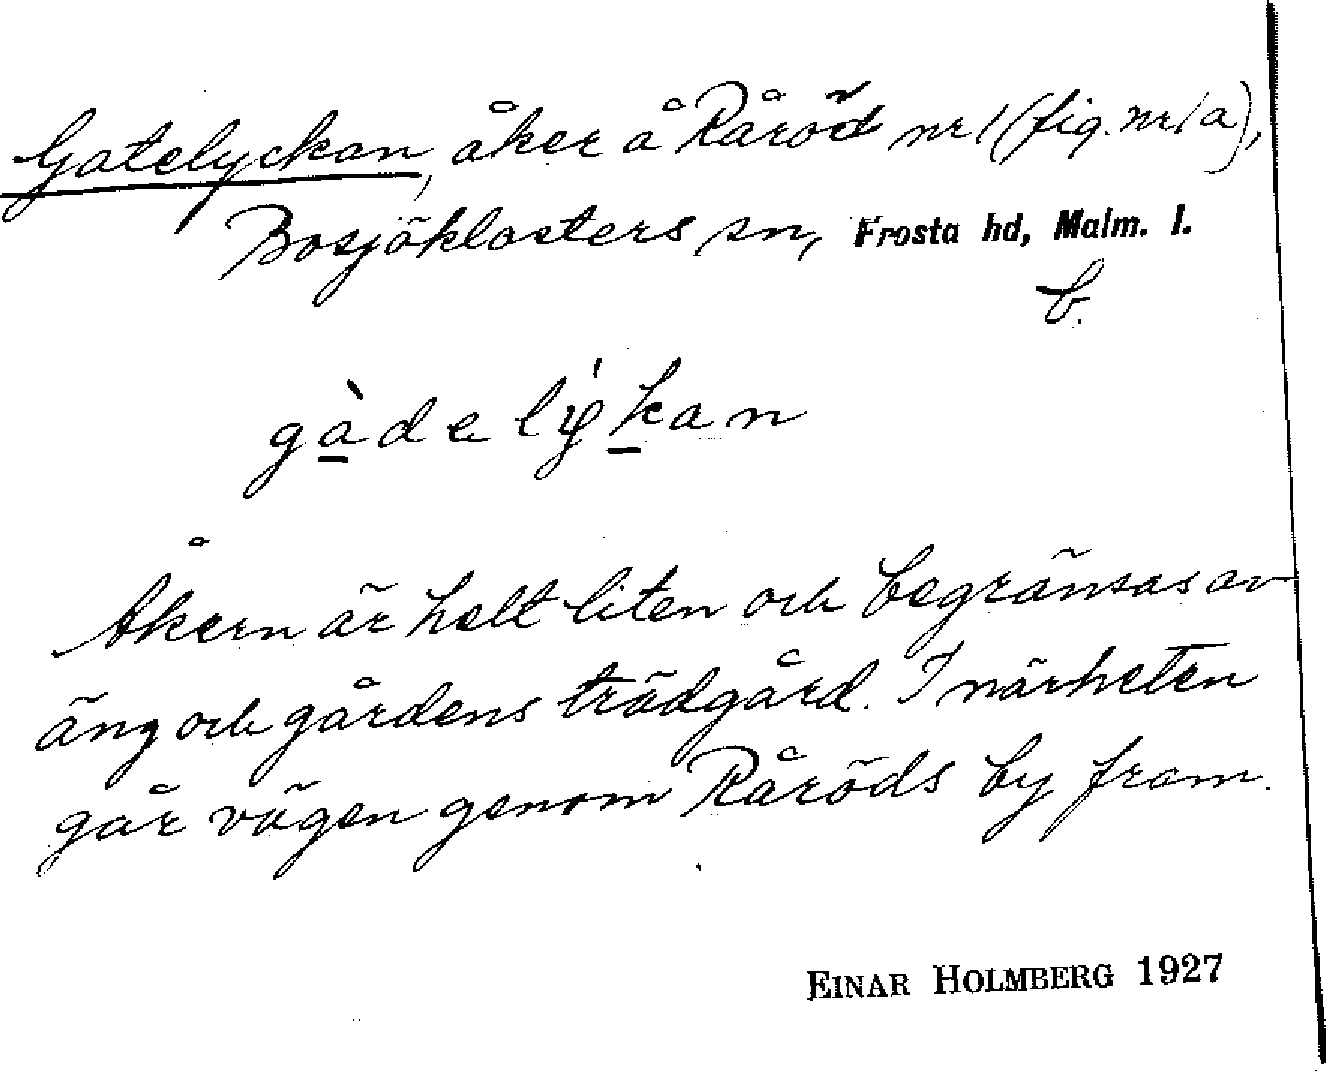 Gatelyckan, åker å Råröd nr 1 (fig. nr 1 a),
Bosjöklosters sn, Frosta hd, Malm. l.
b.
gàdelýkan
Åkern är helt liten och begränsas av
äng och gårdens trädgård. I närheten
går vägen genom Råröds by fram.
EINAR HOLMBERG 1927